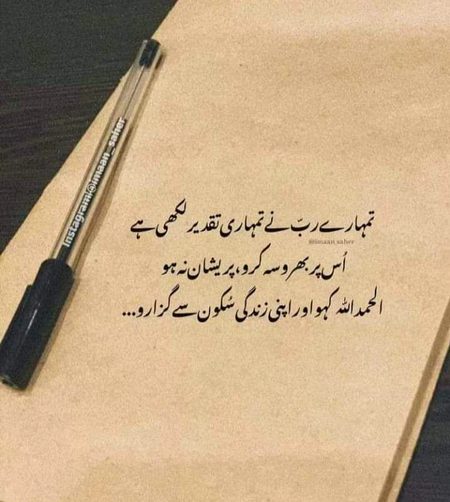 تمہارے ربّ نے تمہاری تقدیر لکھی ہے
@imaan_saher
اُس پر بھروسہ کرو، پریشان نہ ہو
الحمدللہ کہو اور اپنی زندگی سُکون سے گزارو...
Instagram@imaan_saher